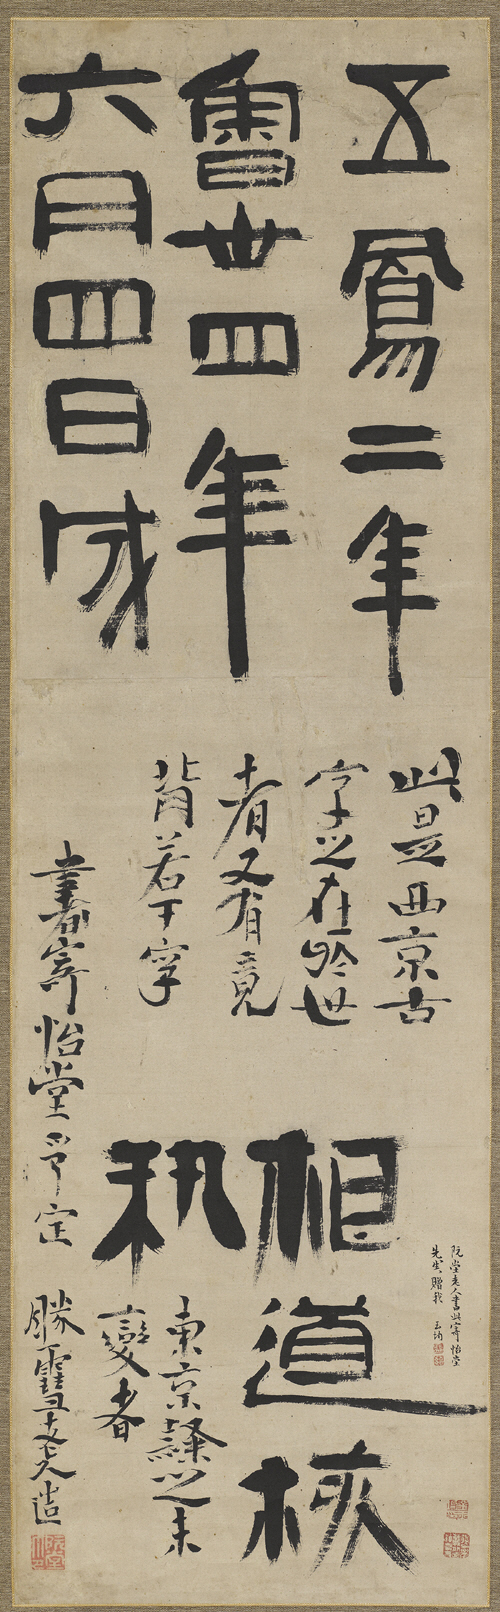 五鳳二年
魯卅四年
六月四日成
此是西京古
字之在於世
者又有竟
背若干字
相道
東京隸之未
變者
書寄怡堂 定
勝雪老人
阮堂老人書此寄怡堂
先生贈我
阮堂